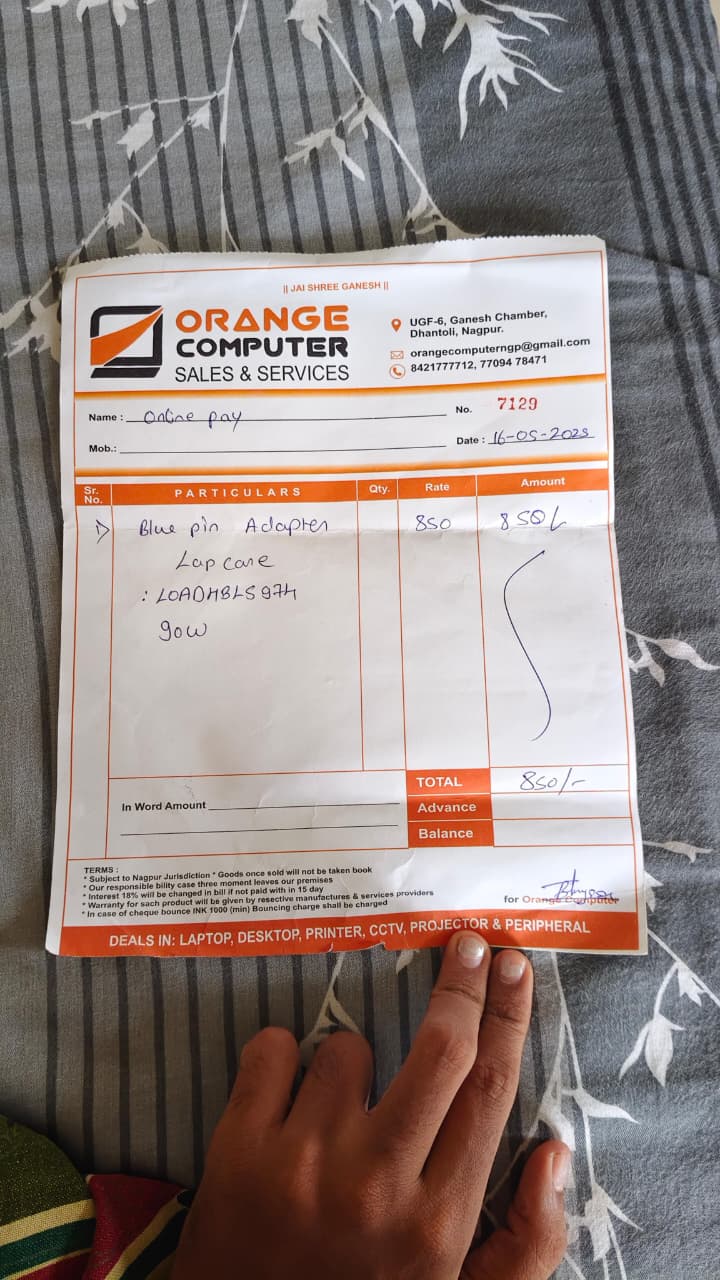 || JAI SHREE GANESH ||
ORANGE
COMPUTER
SALES & SERVICES
UGF-6, Ganesh Chamber,
Dhantoli, Nagpur.
orangecomputerngp@gmail.com
8421777712, 77094 78471
Name : Online pay
No. 7129
Mob.:
Date : 16-05-2025
Sr. No. PARTICULARS Qty. Rate Amount
1) Blue pin Adapter 850 850/-
Lap care
: LOADHBLS974
90W
TOTAL 850/-
In Word Amount
Advance
Balance
TERMS :
* Subject to Nagpur Jurisdiction * Goods once sold will not be taken book
* Our responsible bility case three moment leaves our premises
* Interest 18% will be changed in bill if not paid with in 15 day
* Warranty for sach product will be given by resective manufactures & services providers
* In case of cheque bounce INK 1000 (min) Bouncing charge shall be charged
for Orange Computer
DEALS IN: LAPTOP, DESKTOP, PRINTER, CCTV, PROJECTOR & PERIPHERAL